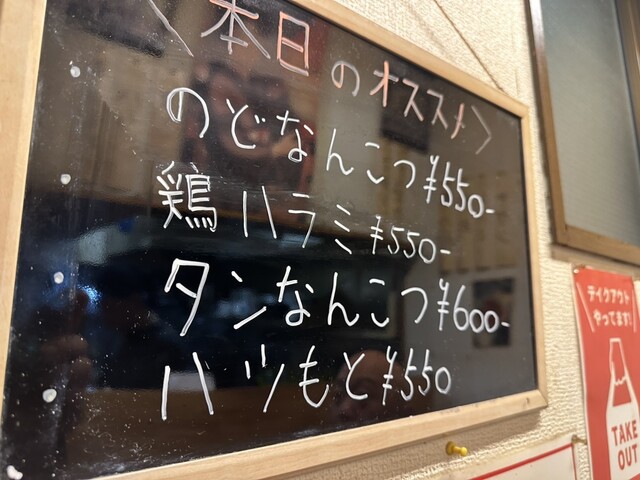 〈本日のオススメ〉
のどなんこつ¥550-
鶏ハラミ¥550-
タンなんこつ¥600-
ハツもと¥550
テイクアウト
やってます!
TAKE
OUT